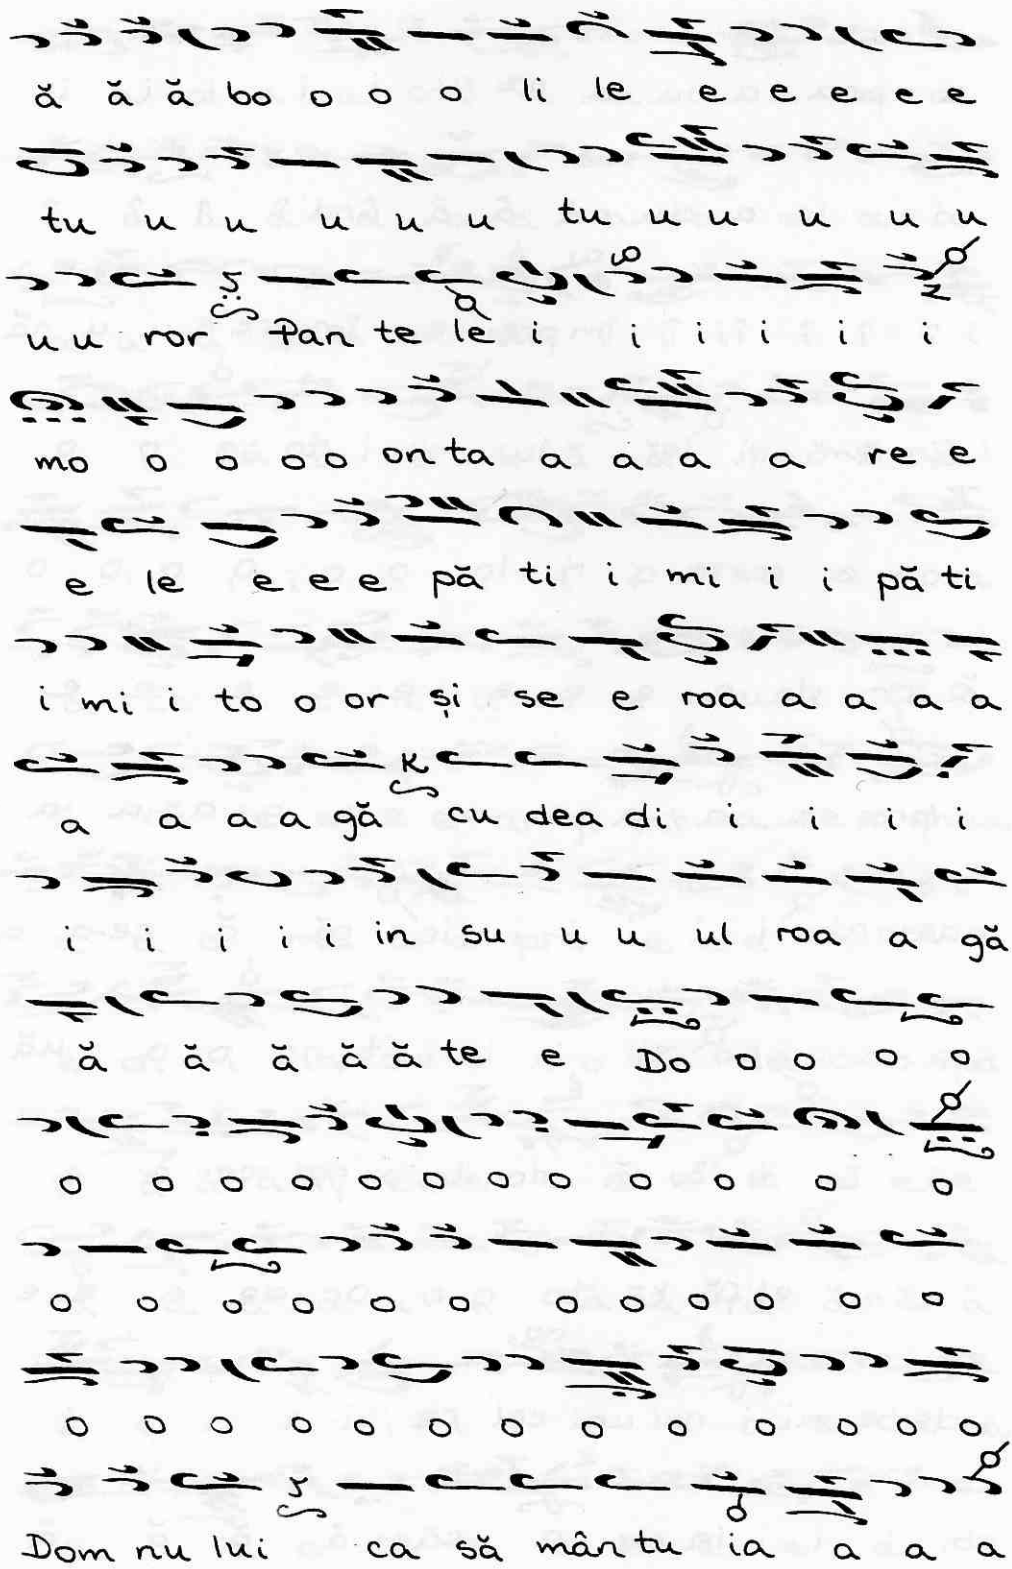 ă ă ă bo o o o li le e e e e e
tu u u u u u tu u u u u u
u u ror Pan te le i i i i i i
mo o o o o on ta a a a a re e
e le e e e pă ti i mi i i pă ti
i mi i to o or și se e roa a a a a
a a a a gă cu dea di i i i i
i i i i i in su u u ul roa a gă
ă ă ă ă ă te e Do o o o o
o o o o o o o o o o o o
o o o o o o o o o o o o
o o o o o o o o o o o o
Dom nu lui ca să mân tu ia a a a